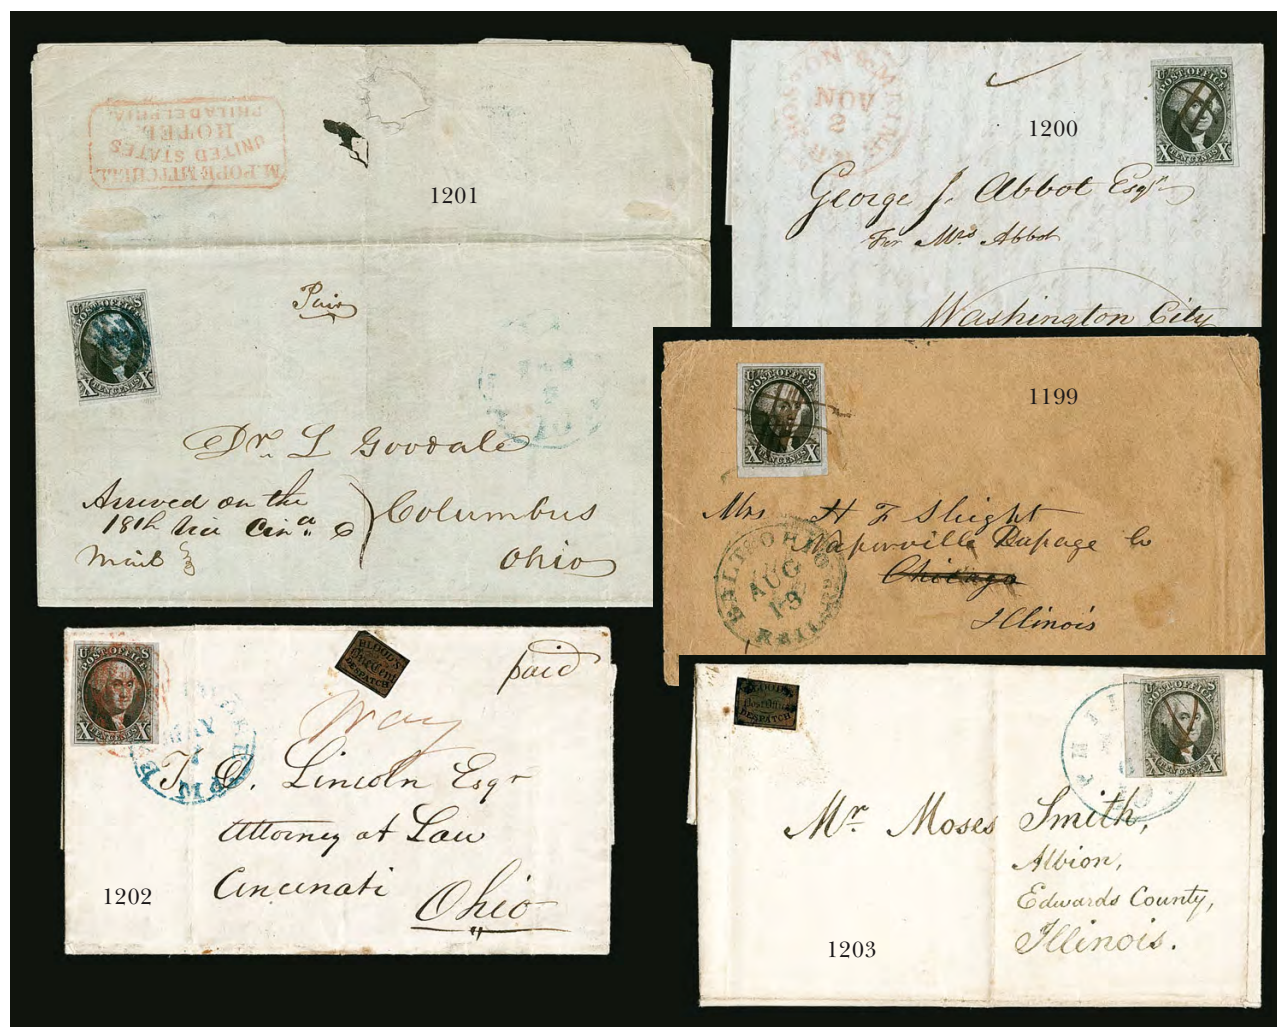 M. POPE MITCHELL
UNITED STATES
HOTEL
PHILADELPHIA
1201
U S
POST OFFICE
X TEN CENTS X
Paid
Dr. L Goodale
Arrived on the
18th via Cin.a
mail
Columbus
Ohio
BOSTON
NOV
2
U S
POST OFFICE
X TEN CENTS X
1200
George J. Abbot Esqr
For Mrs Abbot
Washington City
U S
POST OFFICE
X TEN CENTS X
1199
Mrs H F Sleight
Naperville Dupage Co
Chicago
Illinois
BALT & OHIO R.R.
AUG
13
U S
POST OFFICE
X TEN CENTS X
BLOOD'S
DESPATCH
paid
Way
MAY
T. O. Lincoln Esqr
Attorney at Law
Cincinati
Ohio
1202
BLOOD'S
Post Office
DESPATCH
POST OFFICE
TEN CENTS
Mr. Moses Smith,
Albion,
Edwards County,
Illinois.
1203